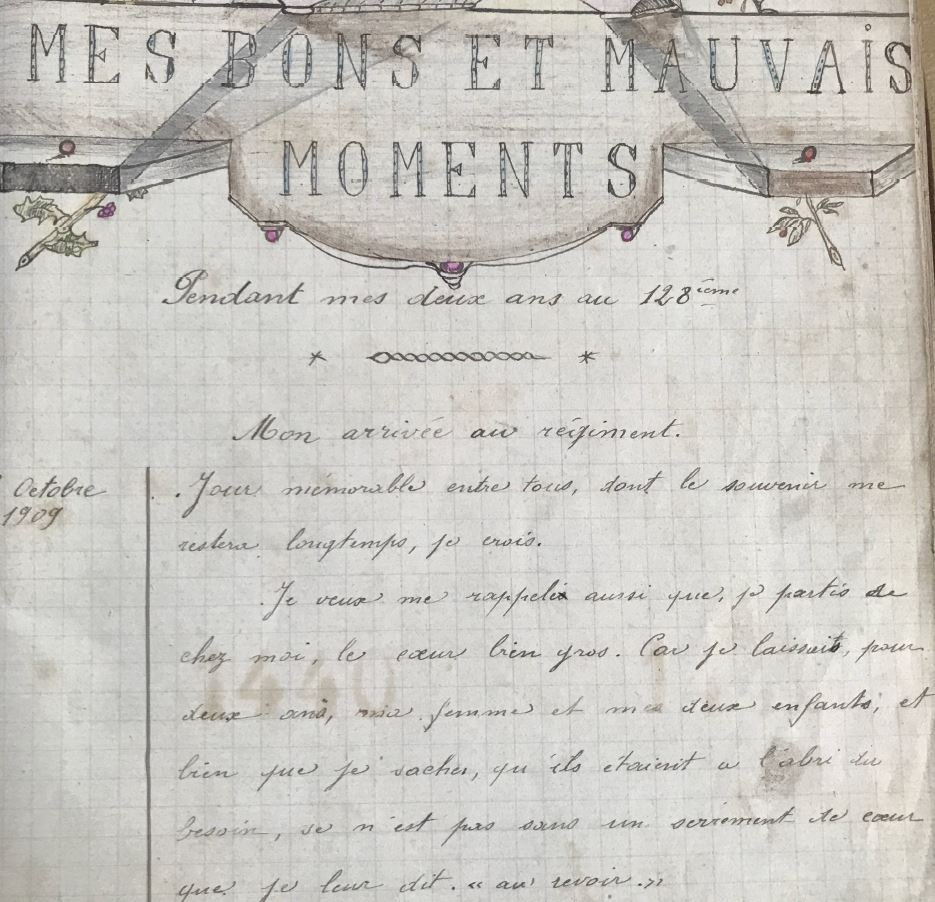 MES BONS ET MAUVAIS
MOMENTS
Pendant mes deux ans au 128ième
Mon arrivée au régiment.
Octobre
1909
Jour mémorable entre tous, dont le souvenir me
restera longtemps, je crois.
Je veux me rappeler aussi que, je partis de
chez moi, le cœur bien gros. Car je laissait, pour
deux ans, ma femme et mes deux enfants, et
bien que je saches, qu'ils étaient a l'abri du
besoin, se n'est pas sans un serrement de cœur
que je leur dit. « au revoir. »
1440